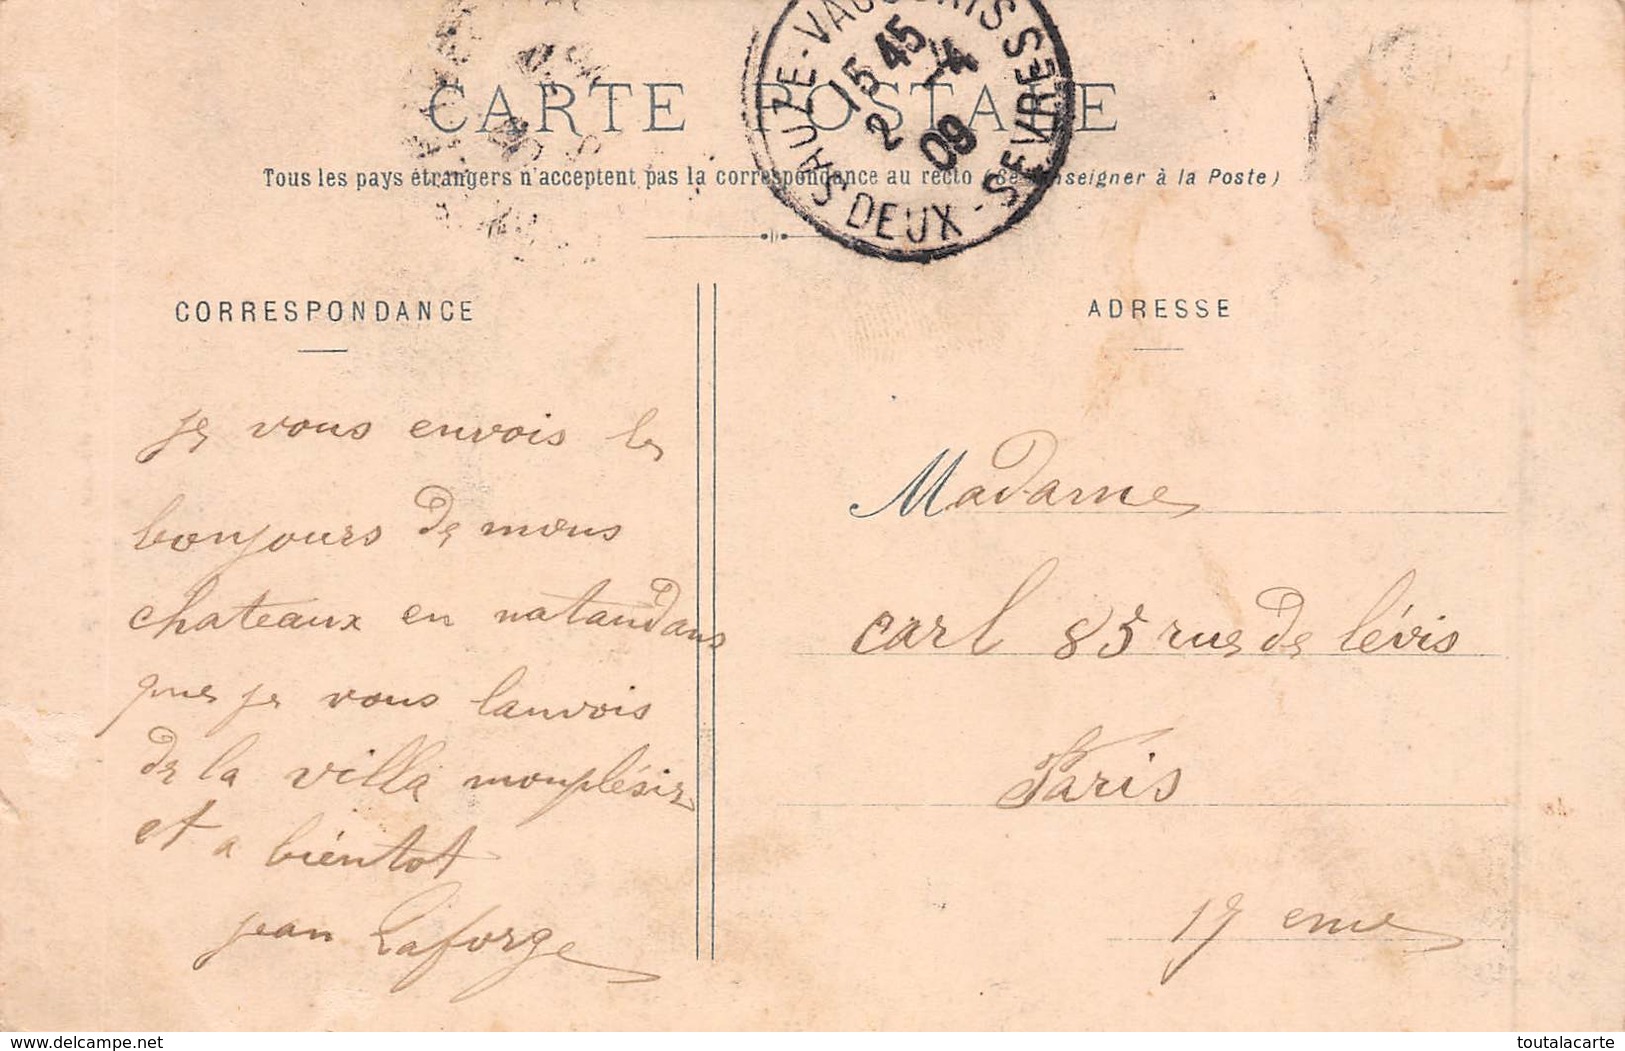 CARTE POSTALE
SAUZE-VAUSSAIS
DEUX-SEVRES
15 45
2 -4
09
Tous les pays étrangers n'acceptent pas la correspondance au recto (Se renseigner à la Poste)
CORRESPONDANCE
je vous envois le
bonjours de mous
chateaux en natandans
que je vous lanvois
de la villa monplésir
et a bientot
jean Laforge
ADRESSE
Madame
Carl 85 rue de lévis
Paris
17 eme
www.delcampe.net
toutalacarte